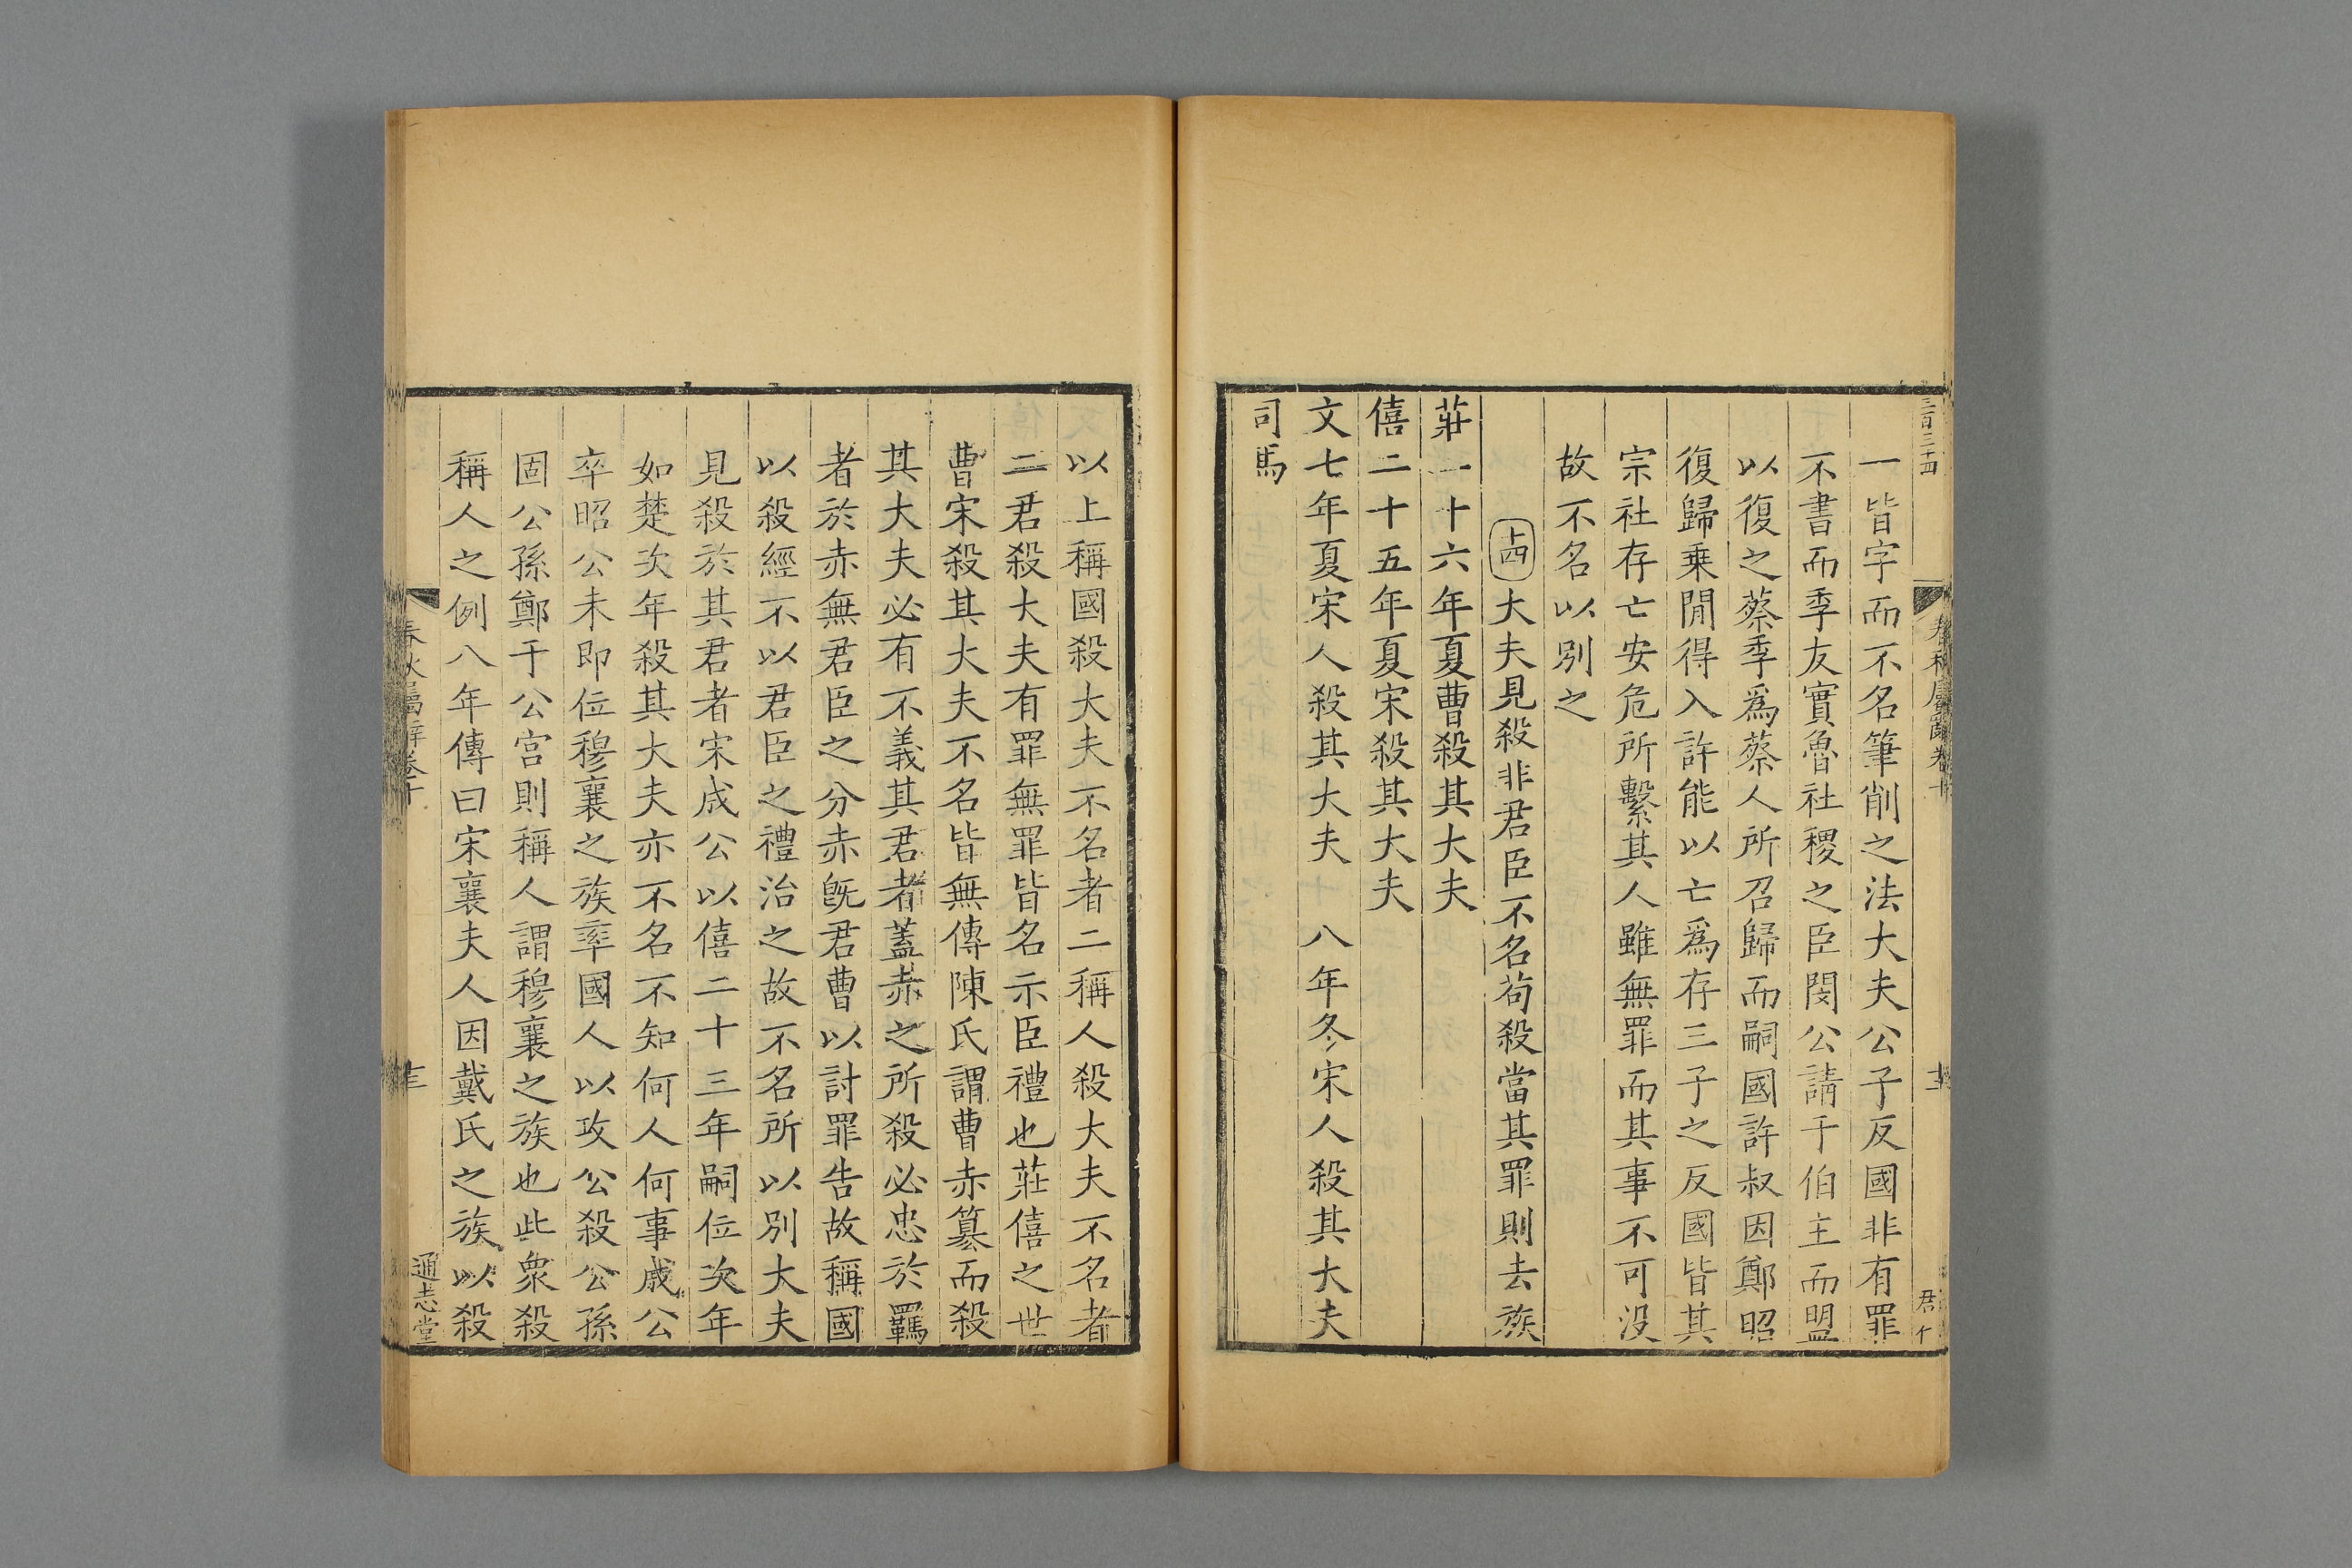 一皆字而不名筆削之法大夫公子反國非有罪
不書而季友實魯社稷之臣閔公請于伯主而盟
以復之蔡季爲蔡人所召歸而嗣國許叔因鄭昭
復歸乗閒得入許能以亡爲存三子之反國皆其
宗社存亡安危所繫其人雖無罪而其事不可没
故不名以別之
十四大夫見殺非君臣不名苟殺當其罪則去族
莊二十六年夏曹殺其大夫
僖二十五年夏宋殺其大夫
文七年夏宋人殺其大夫 八年冬宋人殺其大夫
司馬
以上稱國殺大夫不名者二稱人殺大夫不名者
二君殺大夫有罪無罪皆名示臣禮也莊僖之世
曹宋殺其大夫不名皆無傳陳氏謂曹赤簒而殺
其大夫必有不義其君者蓋赤之所殺必忠於羈
者於赤無君臣之分赤旣君曹以討罪告故稱國
以殺經不以君臣之禮治之故不名所以別大夫
見殺於其君者宋成公以僖二十三年嗣位次年
如楚次年殺其大夫亦不名不知何人何事成公
卒昭公未即位穆襄之族率國人以攻公殺公孫
固公孫鄭于公宮則稱人謂穆襄之族也此衆殺
稱人之例八年傳曰宋襄夫人因戴氏之族以殺
春秋屬辭卷十
十三
通志堂